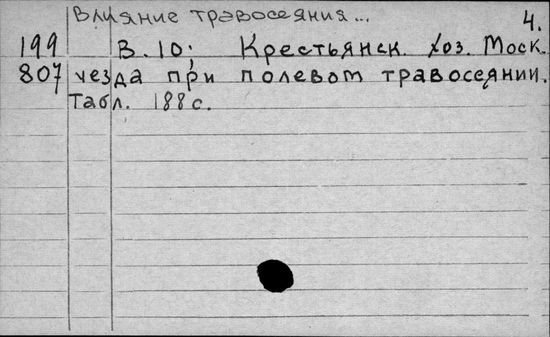 Влияние травосеяния...
4.
199 В. 10. Крестьянск. хоз. Моск.
807 уезда при полевом травосеянии.
Табл. 188 с.